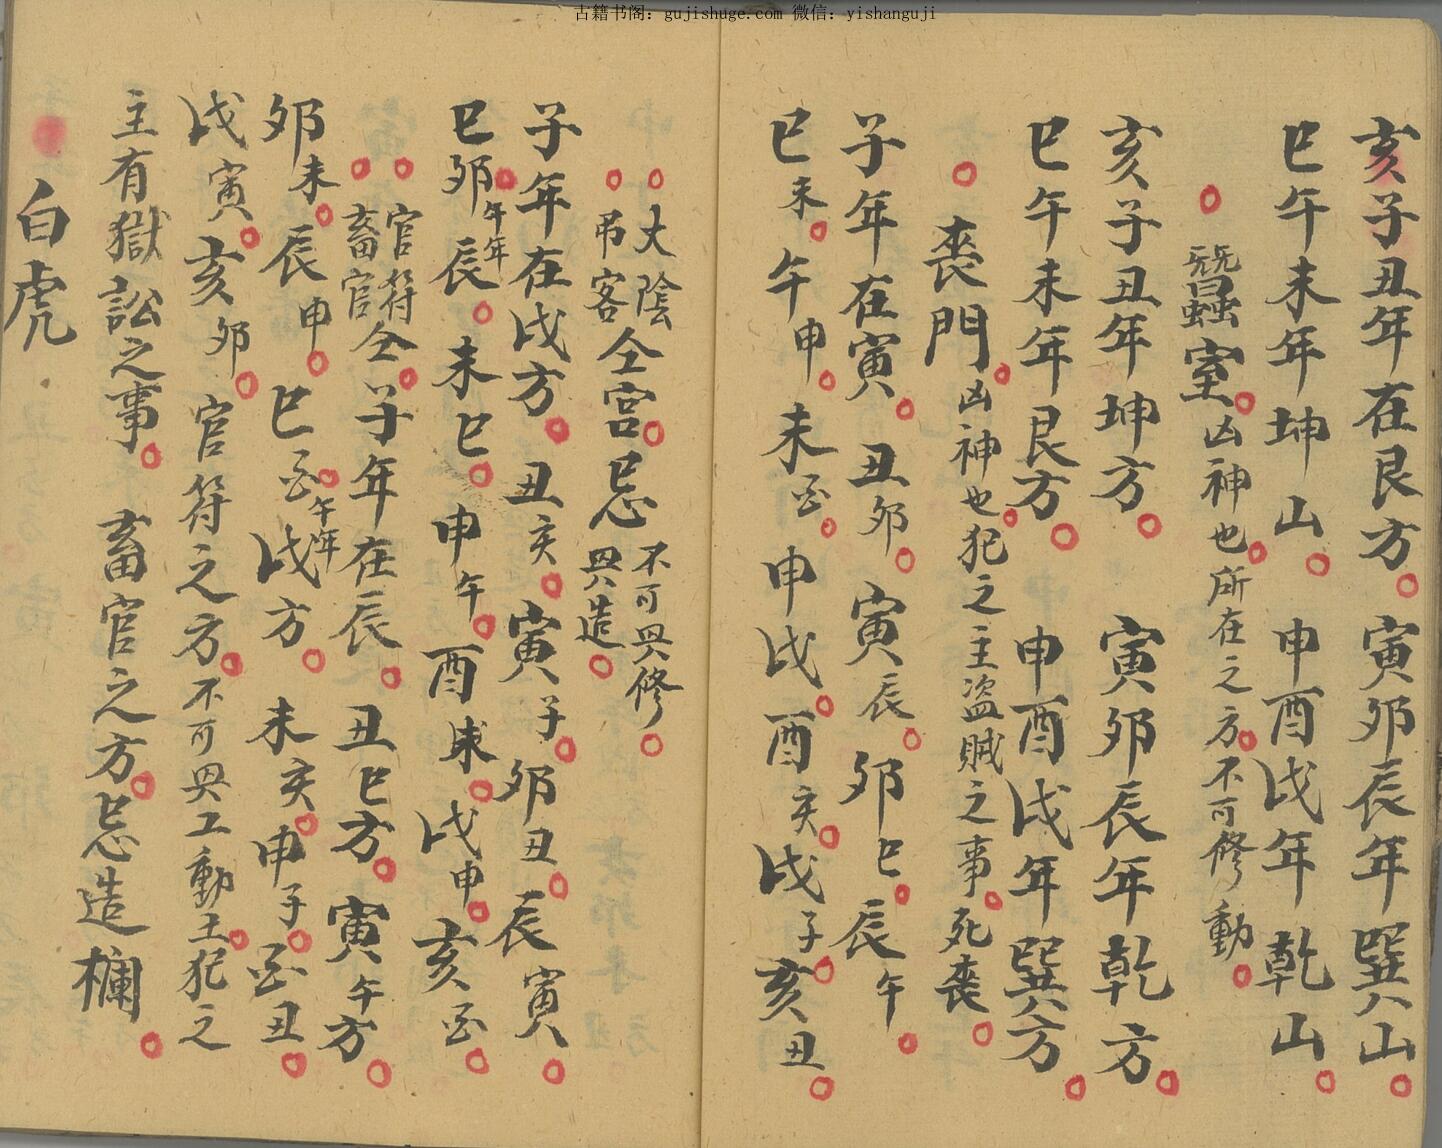 古籍书阁：gujishuge.com 微信：yishanguji
亥子丑年在艮方寅卯辰年巽山
巳午未年坤山申酉戌年乾山
蠶室凶神也所在之方不可修動
亥子丑年坤方寅卯辰年乾方
巳午未年艮方申酉戌年巽方
喪門凶神也犯之主盗賊之事死喪
子年在寅丑卯寅辰卯巳辰午
巳未午申未酉申戌酉亥戌子亥丑
太陰
吊客
仝宫忌
不可與修
與造
子年在戌方丑亥寅子卯丑辰寅
巳卯午年辰未巳申午酉未戌申亥酉
官符
畜官
仝子年在辰丑巳方寅午方
卯未辰申巳酉午年戌方未亥申子酉丑
戌寅亥卯官符之方不可與工動土犯之
主有獄訟之事畜官之方忌造欄
白虎